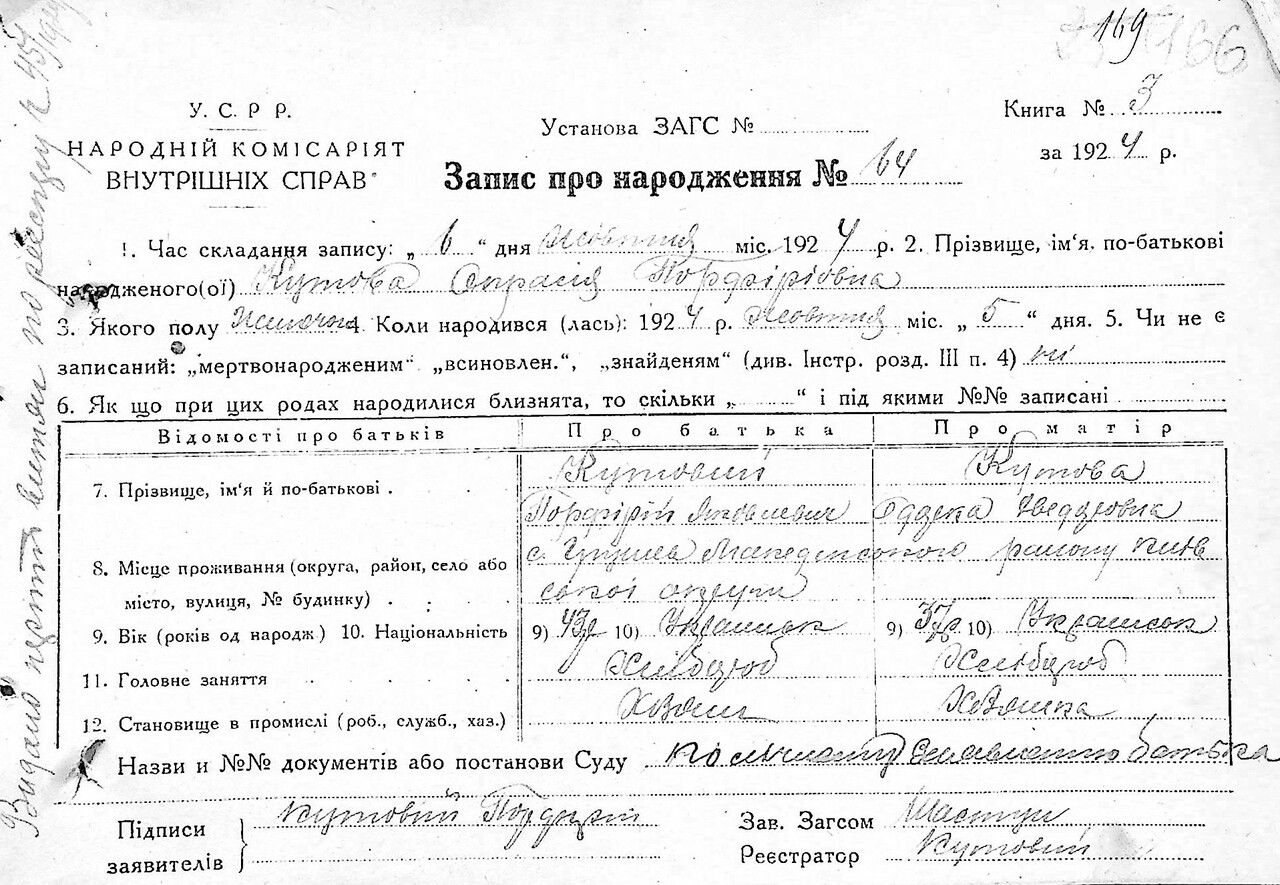 169
166
У. С. Р Р.
НАРОДНІЙ КОМІСАРІЯТ
ВНУТРІШНІХ СПРАВ
Установа ЗАГС №
Книга № 3
за 1924 р.
Запис про народження № 64
1. Час складання запису: „ 6 “ дня Жовтня міс. 1924 р. 2. Прізвище, ім'я, по-батькові
народженого(ої) Кутова Опрасія Порфіріовна
3. Якого полу Жіночої 4. Коли народився (лась): 1924 р. Жовтня міс. „ 5 “ дня. 5. Чи не є
записаний: „мертвонародженим“ „всиновлен.“, „знайденям“ (див. Інстр. розд. III п. 4) ні
6. Як що при цих родах народилися близнята, то скільки „ “ і під якими №№ записані
Відомості про батьків Про батька Про матір
7. Прізвище, ім'я й по-батькові . Кутовий Кутова
Порфірій Яковлевич
8. Місце проживання (округа, район, село або с. району Київ
місто, вулиця, № будинку) . . ської округи
9. Вік (років од народж) 10. Національність 9) 43р 10) Українець 9) 37р 10) Українок
11. Головне заняття Хлібороб Хлібороб
12. Становище в промислі (роб., служб., хаз.) Хозяїн Хозяйка
Назви и №№ документів або постанови Суду батька
Підписи
заявителів
Кутовий Порфирій
Зав. Загсом
Реєстратор Кутовий
Видано по реєстру